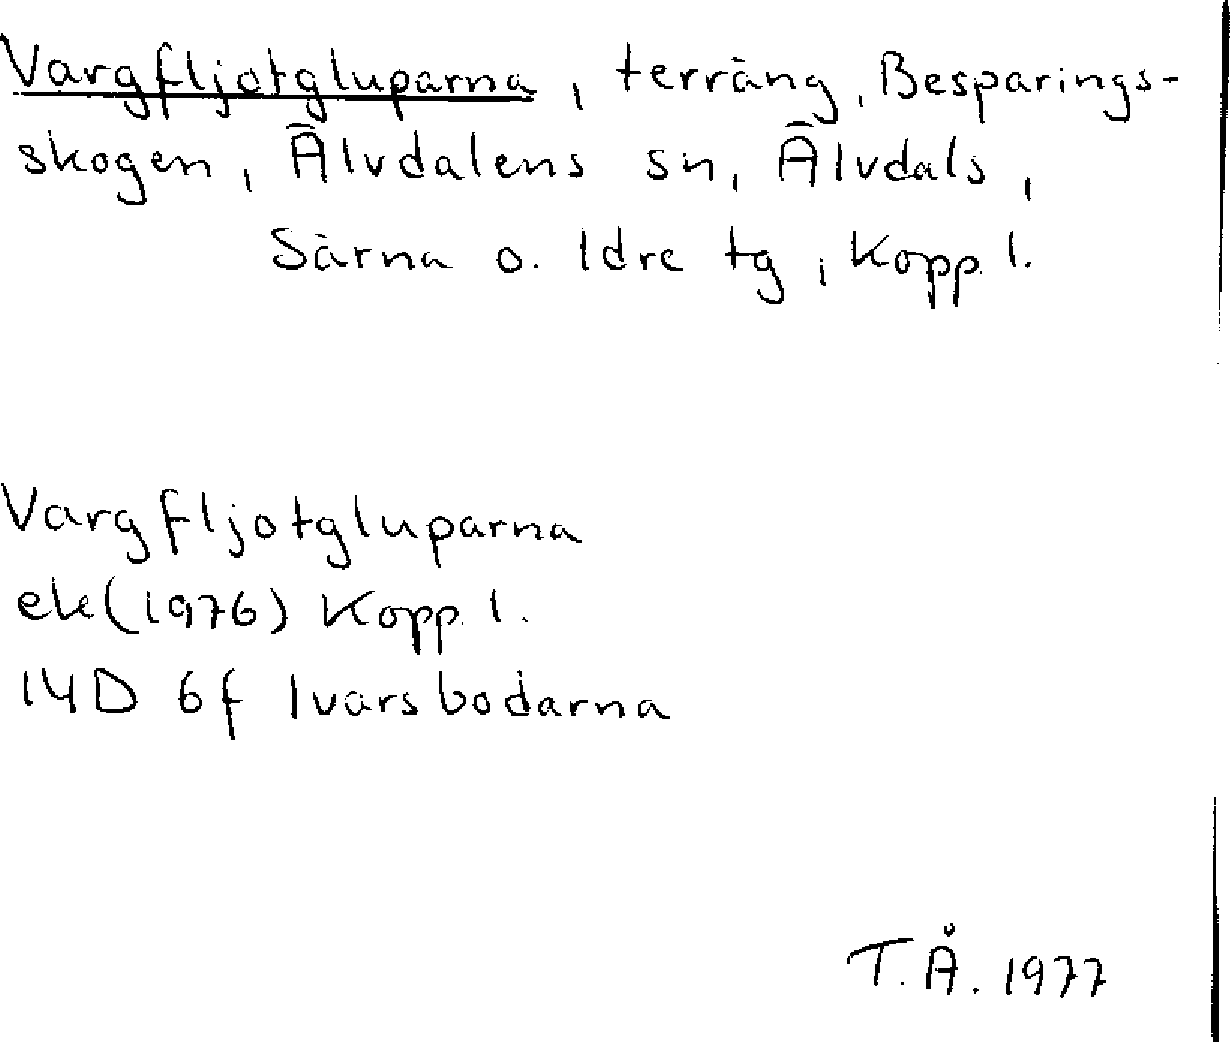 Vargfljotgluparna, terräng, Besparings-
skogen, Älvdalens sn, Älvdals,
Särna o. Idre tg, Kopp. l.
Vargfljotgluparna
ek (1976) Kopp. l.
14D 6f Ivarsbodarna
T.Å. 1977